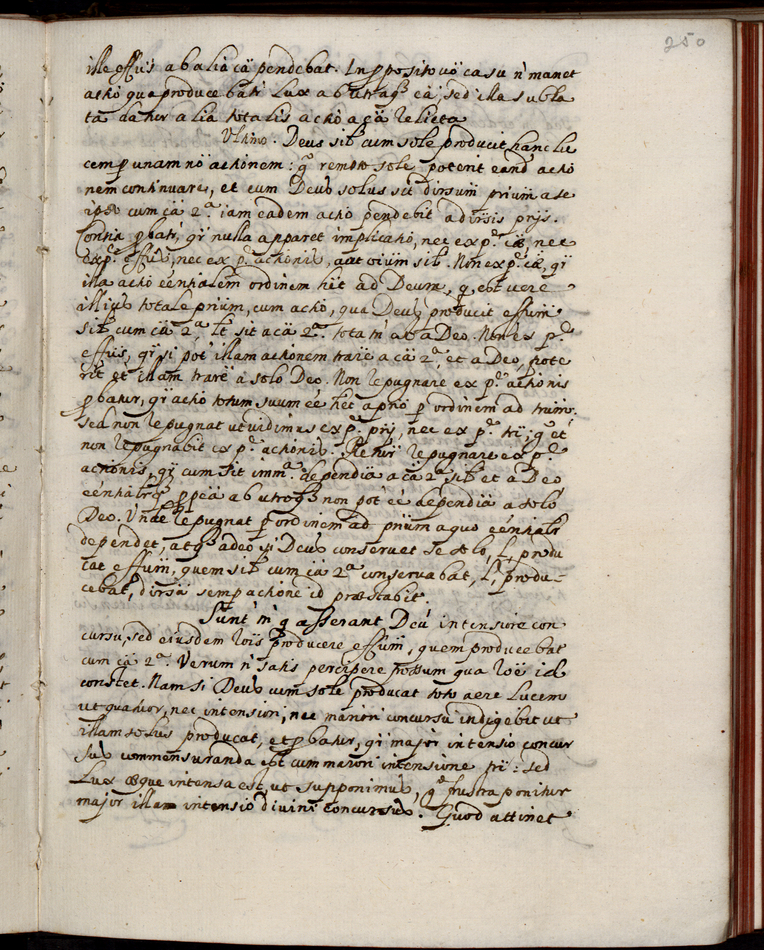 250
ille effus ab alia cä pendebat. In pposito vö casu n' manet
actio qua producebatr Lux ab utraq cä, sed illa subla
ta datur alia totalis actio a cä relicta
Ultimo. Deus sil cum sole producit hanc lu
cem p unam nö actionem: g remoto sole poterit eand actio
nem continuare, et cum Deus solus sit dirsum prium a se
ipso cum cä 2ª. iam eadem actio pendebit a dirsis prijs.
Contra pbatr, qı nulla apparet implicatio, nec ex p. cæ, nec
ex p. effus, nec ex p. actionis, aut oium sil. Non ex p. cæ, qı
illa actio eentialem ordinem hët ad Deum, q est vere
illius totale prium, cum actio, qua Deus producit effum
sil cum cä 2ª, lt sit a cä 2ª. tota tn ab a Deo. Non ex p.
effus, qı si pot illam actionem trare a cä 2ª, et a Deo, pote
rit et illam trare à solo Deo. Non repugnare ex p. actionis
pbatur, qı actio totum suum eé hët a prio p ordinem ad trium:
sed non repugnat ut vidimus ex p. prij, nec ex p. trij; g et
non repugnabit ex p. actionis. Retur repugnare ex p.
actionis, qı cum sit immª. dependiä a cä 2ª sil et a Deo
eentialrq ppeä ab utroq non pot eé dependiä a solo
Deo. Unde repugnat p ordinem ad prium a quo eentialr
dependet, atq adeo si Deus conservet se solo, l, produ
cat effum, quem sil cum cä 2ª conservabat, l, produ-
cebat, dirsä semp actione id præstabit.
Sunt tn q asserant Deu intensiore con
cursu, sed eiusdem roïs producere effum, quem producebat
cum cä 2ª. Verum n' satis percipere possum qua roë id
constet. Nam si Deus cum sole producat toto aere Lucem
ut quatuor, nec intensiori, nec maiori concursu indigebit ut
illam solus producat, et pbatur, qı major intensio concur
sus commensuranda est cum maiori intensione tri: sed
Lux æque intensa est, ut supponimus, g frustra ponitur
major illa intensio divini concursus. Quod attinet